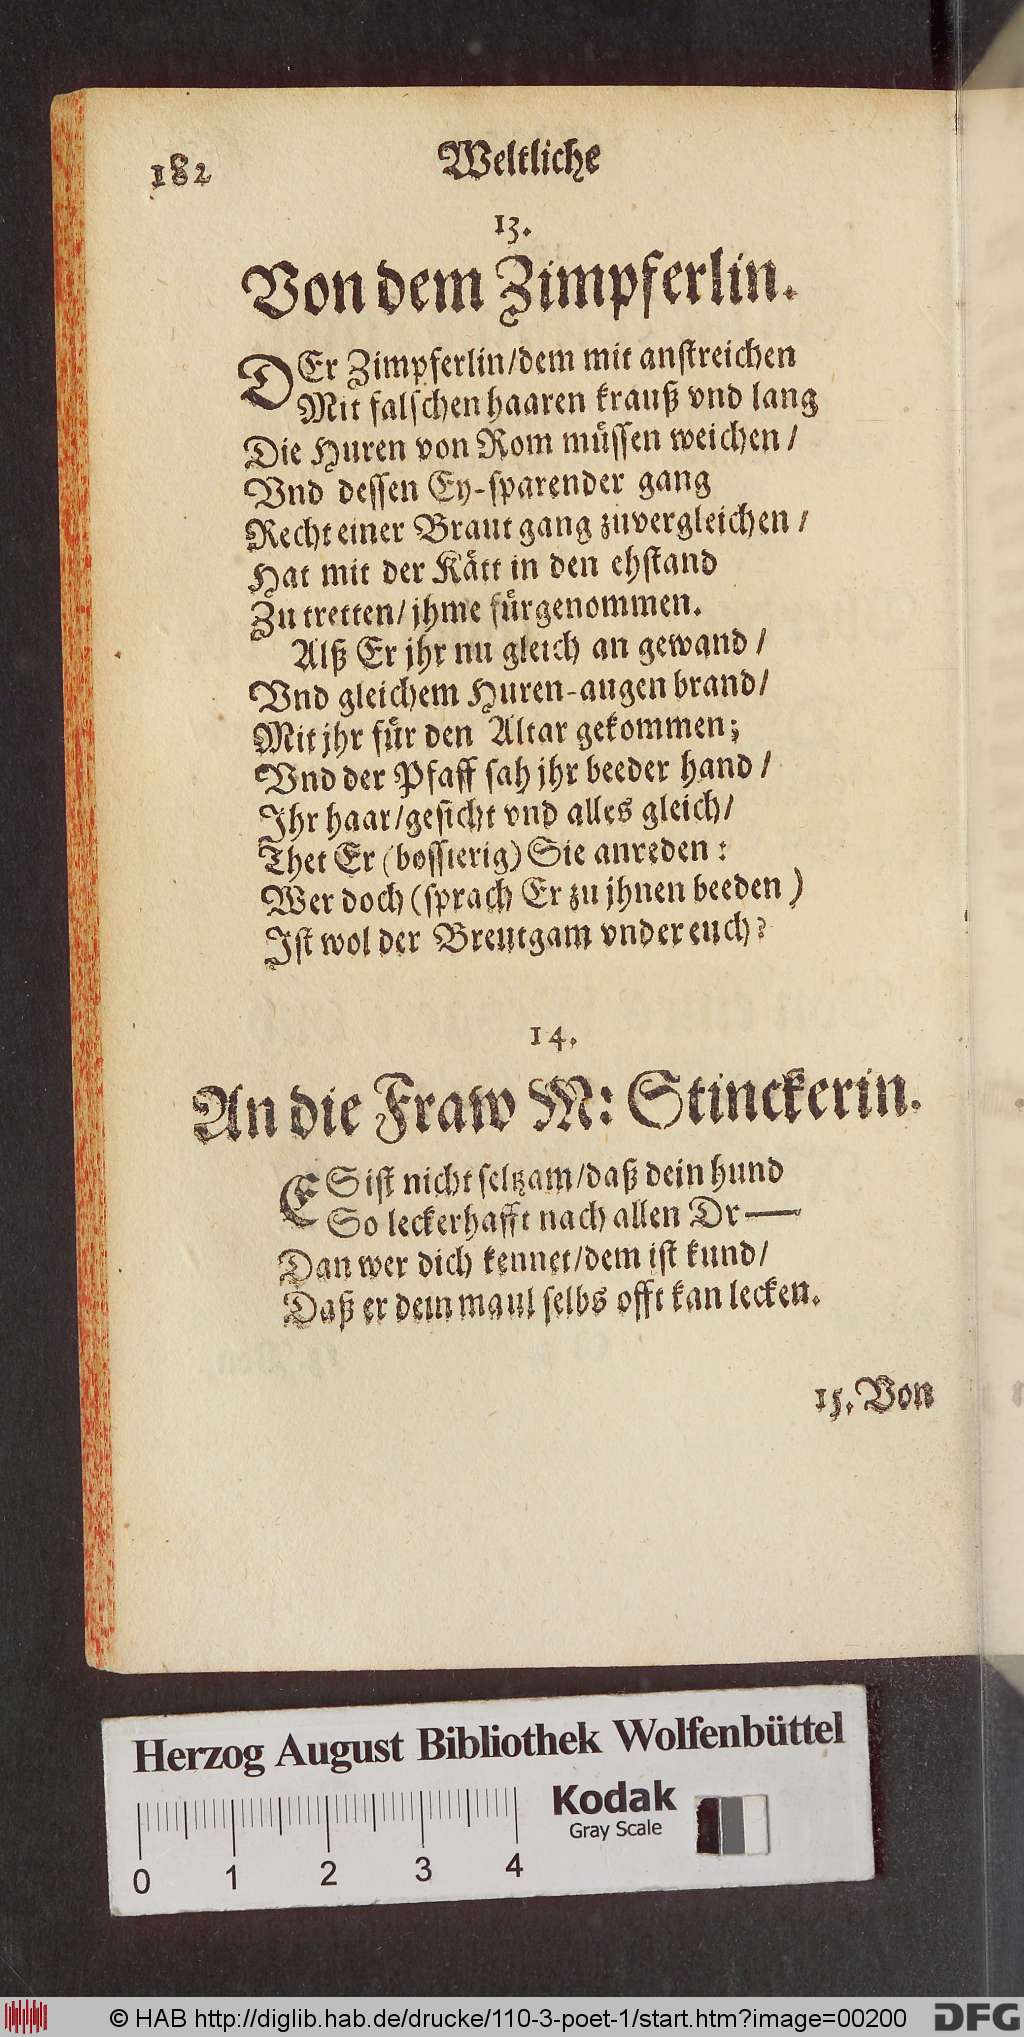 182
Weltliche
13.
Von dem Zimpferlin.
DEr Zimpferlin/dem mit anstreichen
Mit falschen haaren krauß vnd lang
Die Huren von Rom müssen weichen/
Vnd dessen Ey-sparender gang
Recht einer Braut gang zuvergleichen/
Hat mit der Kätt in den ehstand
Zu tretten/jhme fürgenommen.
Alß Er jhr nu gleich an gewand/
Vnd gleichem Huren-augen brand/
Mit jhr für den Altar gekommen;
Vnd der Pfaff sah jhr beeder hand/
Ihr haar/gesicht vnd alles gleich/
Thet Er (bossierig) Sie anreden:
Wer doch (sprach Er zu jhnen beeden)
Ist wol der Breutgam vnder euch?
14.
An die Fraw M: Stinckerin.
ES ist nicht seltzam/daß dein hund
So leckerhafft nach allen Dr—
Dan wer dich kennet/dem ist kund/
Daß er dein maul selbs offt kan lecken.
15. Von
Herzog August Bibliothek Wolfenbüttel
Kodak
Gray Scale
0 1 2 3 4
© HAB http://diglib.hab.de/drucke/110-3-poet-1/start.htm?image=00200
DFG